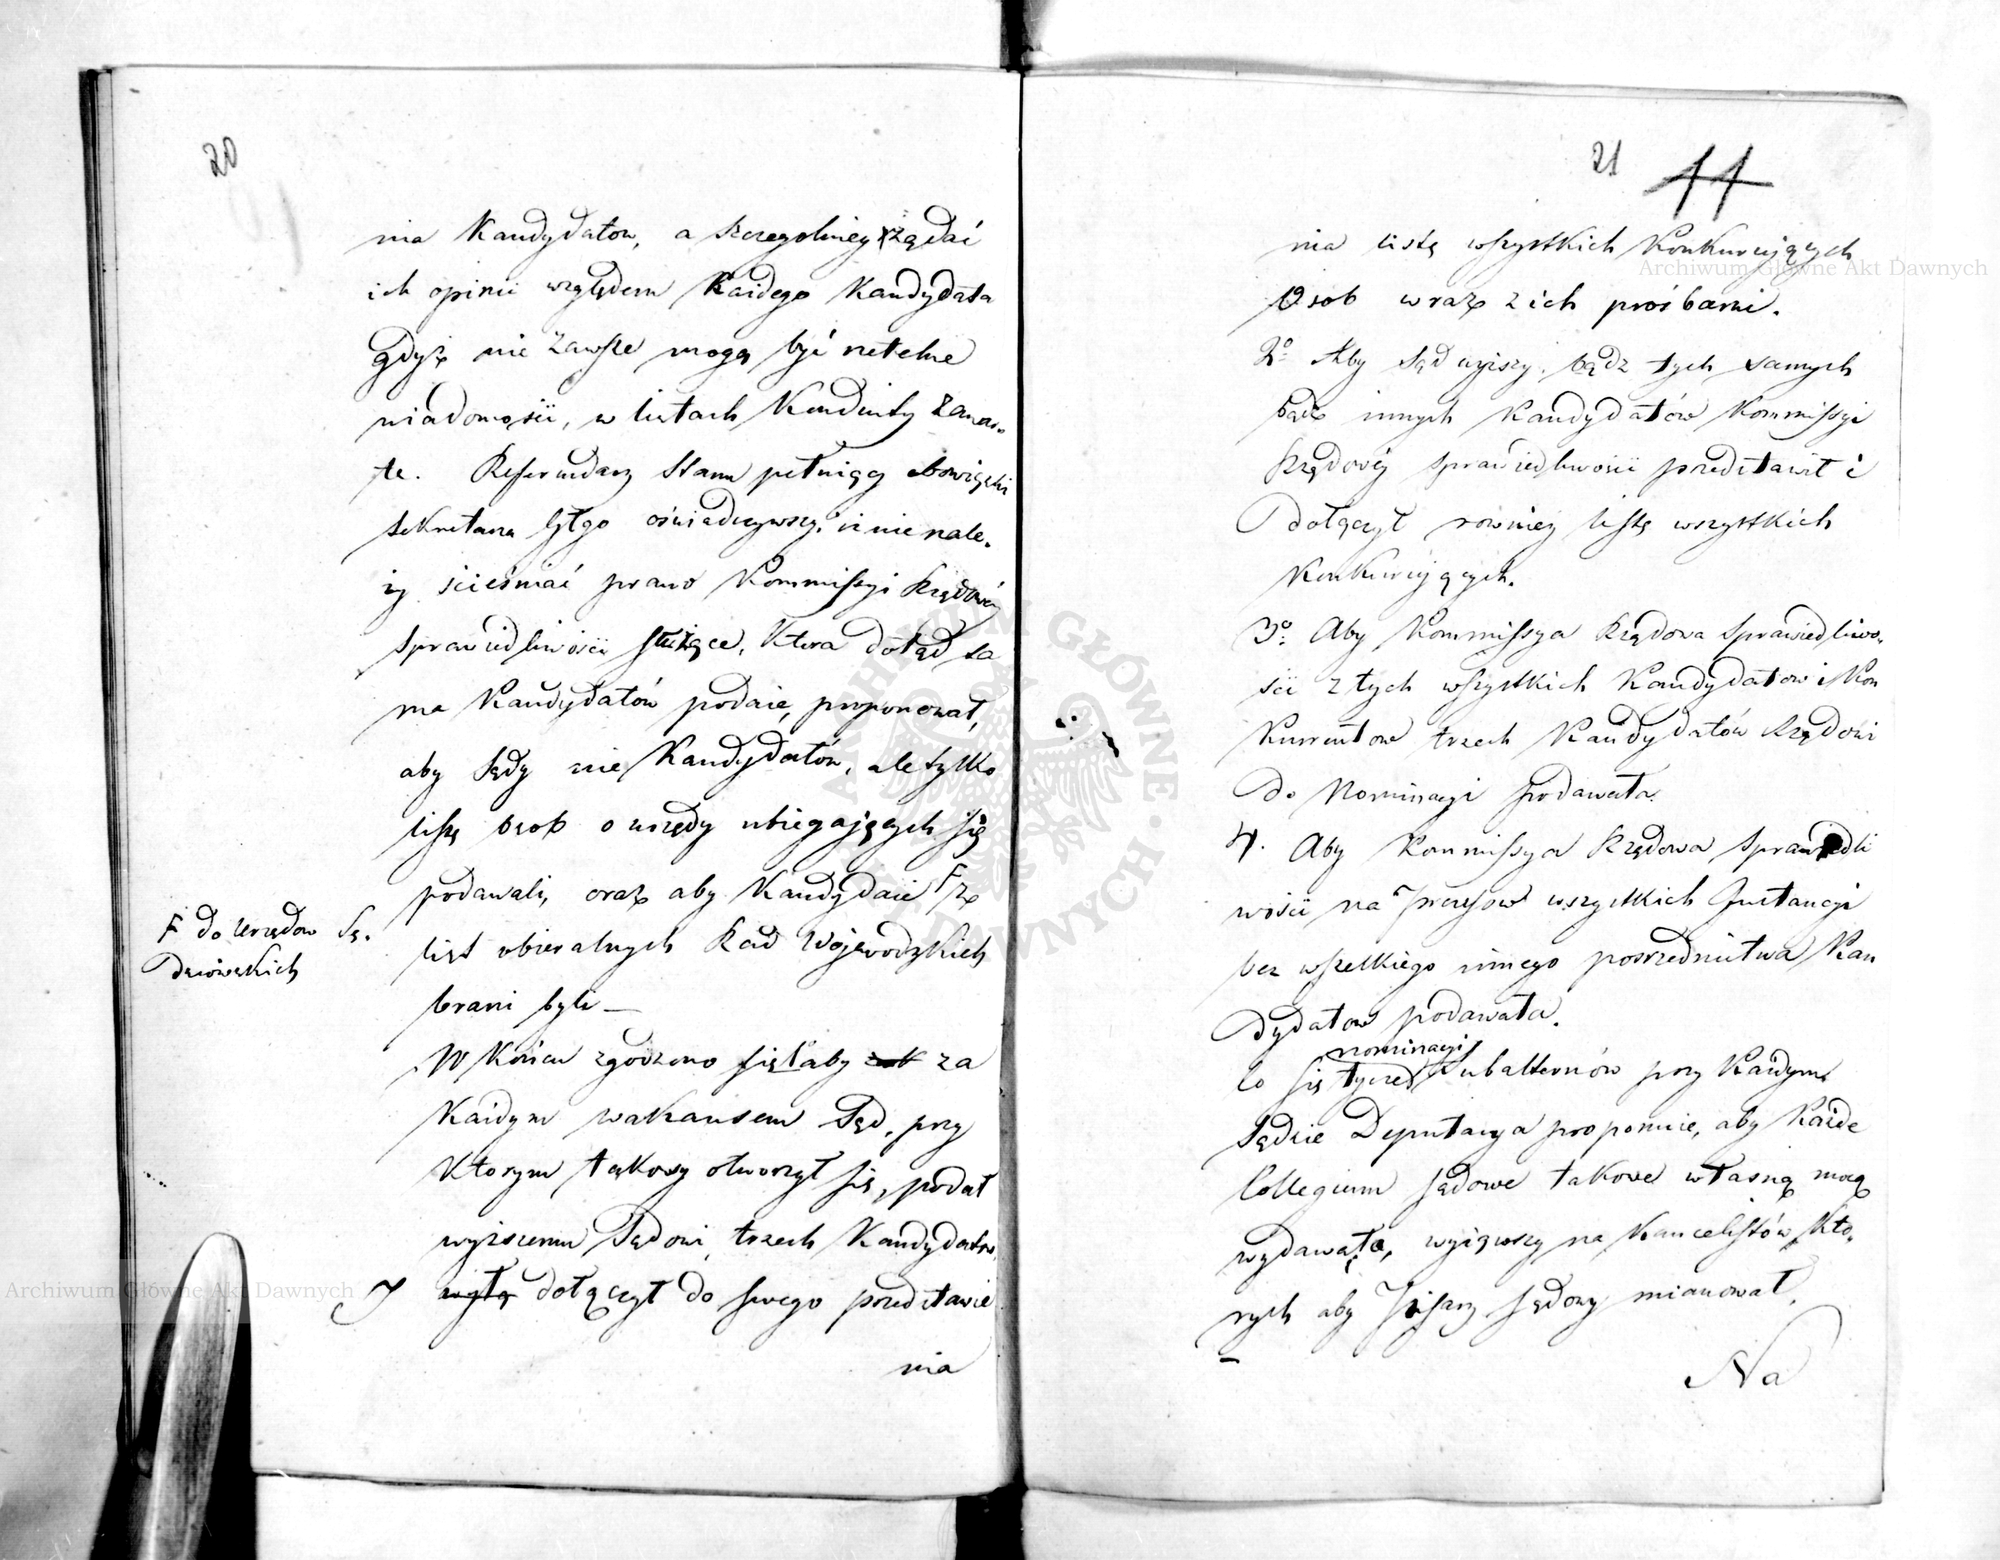 20
nia Kandydatow, a szczegolniey żądać
ich opinii względem Każdego Kandydata
gdyż nie zawsze mogą być retelne
wiadomości, w listach Konduity zawar-
te. Referendarz Stanu pełniący obowiązki
Sekretarza oświadczywszy, iż nie nale-
ży ścieśniać prawo Kommissyi Rządowéy
Sprawiedliwości służące, Ktora dotąd sa
ma Kandydatów podaie, proponował,
aby Sądy nie Kandydatów, ale tylko
listę osob o urzędy ubiegaiących się
podawali, oraz aby Kandydaci F z
list obieralnych Rad Woiewodzkich
brani byli —
F do Urzędow Są-
downiczych
W Końcu zgodzono się 1° aby za
Każdym wakansem Sąd, przy
Ktorym takowy otworzył się, podał
wyższemu Sądowi trzech Kandydatow,
J dołączył do swego przedstawie
nia
21 11
nia listę wszystkich Konkuruiących
Osob wraz z ich prośbami.
2° Aby Sąd wyższy, bądź tych samych
bądź innych Kandydatów Kommissyi
Rządowéy Sprawiedliwości przedstawił i
dołączył rowniey listę wszystkich
Konkuruiących.
3° Aby Kommissya Rządowa Sprawiedliwo-
ści z tych wszystkich Kandydatow i Kon
Kurentow trzech Kandydatów Rządowi
do Nominacyi podawała.
4. Aby Kommissya Rządowa Sprawiedli
wości na Prezesow wszystkich Instancyi
bez wszelkiego innego posrzednictwa Kan
dydatow podawała.
nominacyi
Co się tycze Subalternów przy Każdym
Sądzie Deputacya proponuie, aby Każde
Collegium sądowe takowe własną mocą
wydawało, wyiąwszy na Kancellistów, Kto-
rych aby Pisarz Sądowy mianował.
Na
Archiwum Główne Akt Dawnych
Archiwum Główne Akt Dawnych